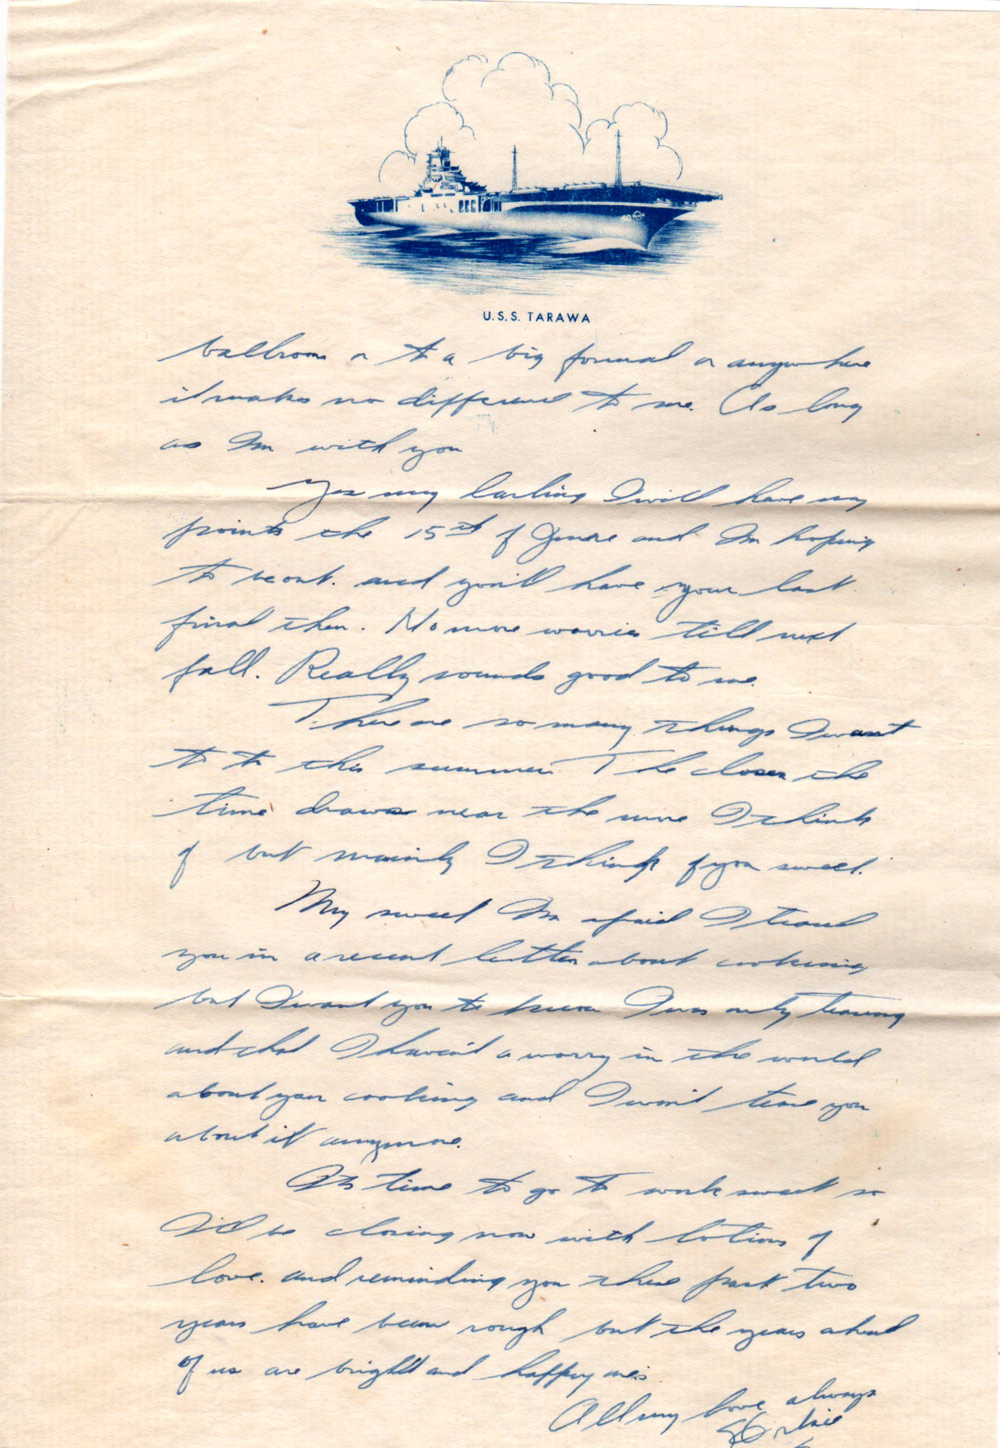 U.S.S. TARAWA
ballroom or to a big formal or anywhere
it makes no difference to me. As long
as Im with you
Yes my darling I will have my
points the 15th of June and Im hoping
to be out. and you'll have your last
final then. No more worries till next
fall. Really sounds good to me.
There are so many things I want
to to this summer. The closer the
time draws near the more I think
of but mainly I think of you sweet.
My sweet Im afraid I teased
you in a recent letter about cooking
but I want you to know I was only teasing
and that I haven't a worry in the world
about your cooking and I won't tease you
about it anymore.
Its time to go to work sweet so
I'll be closing now with lots of
love. and reminding you these past two
years have been rough but the years ahead
of us are bright and happy ones.
All my love always